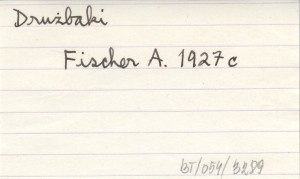 Drużbaki
Fischer A. 1927c
BT/054/3289